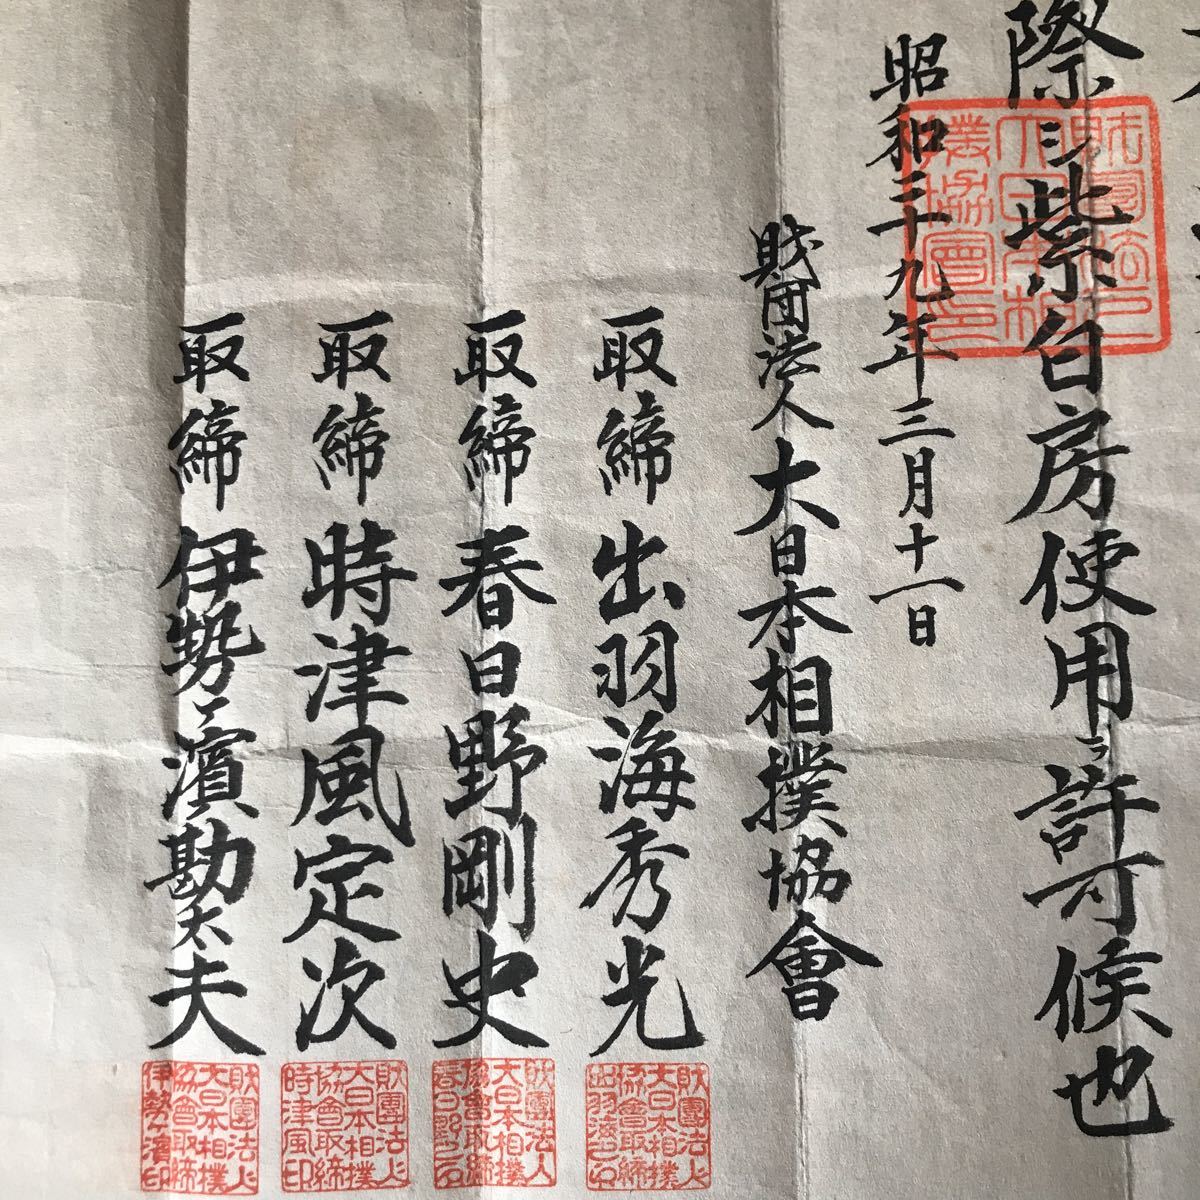 際ニ紫白房使用ヲ許可候也
昭和三十九年三月十一日
財団法人大日本相撲協會
取締 出羽海秀光
取締 春日野剛史
取締 時津風定次
取締 伊勢ヶ濱勘太夫
財團法人大日本相撲協會之印
財團法人大日本相撲協會取締出羽海之印
財團法人大日本相撲協會取締春日野之印
財團法人大日本相撲協會取締時津風印
財團法人大日本相撲協會取締伊勢ヶ濱印